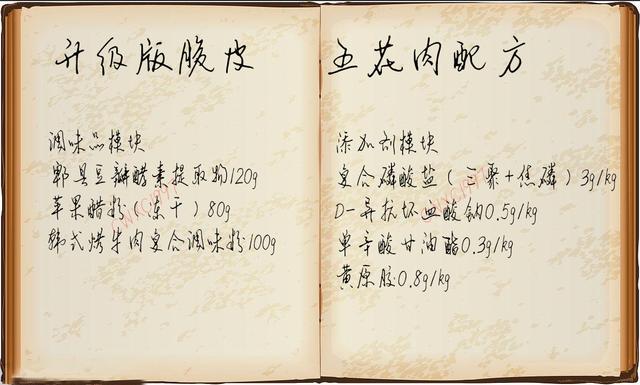 升级版脆皮
调味品模块
郫县豆瓣酵素提取物120g
苹果醋粉（冻干）80g
韩式烤牛肉复合调味粉100g
五花肉配方
添加剂模块
复合磷酸盐（三聚+焦磷）3g/kg
D-异抗坏血酸钠0.5g/kg
单辛酸甘油酯0.3g/kg
黄原胶0.8g/kg